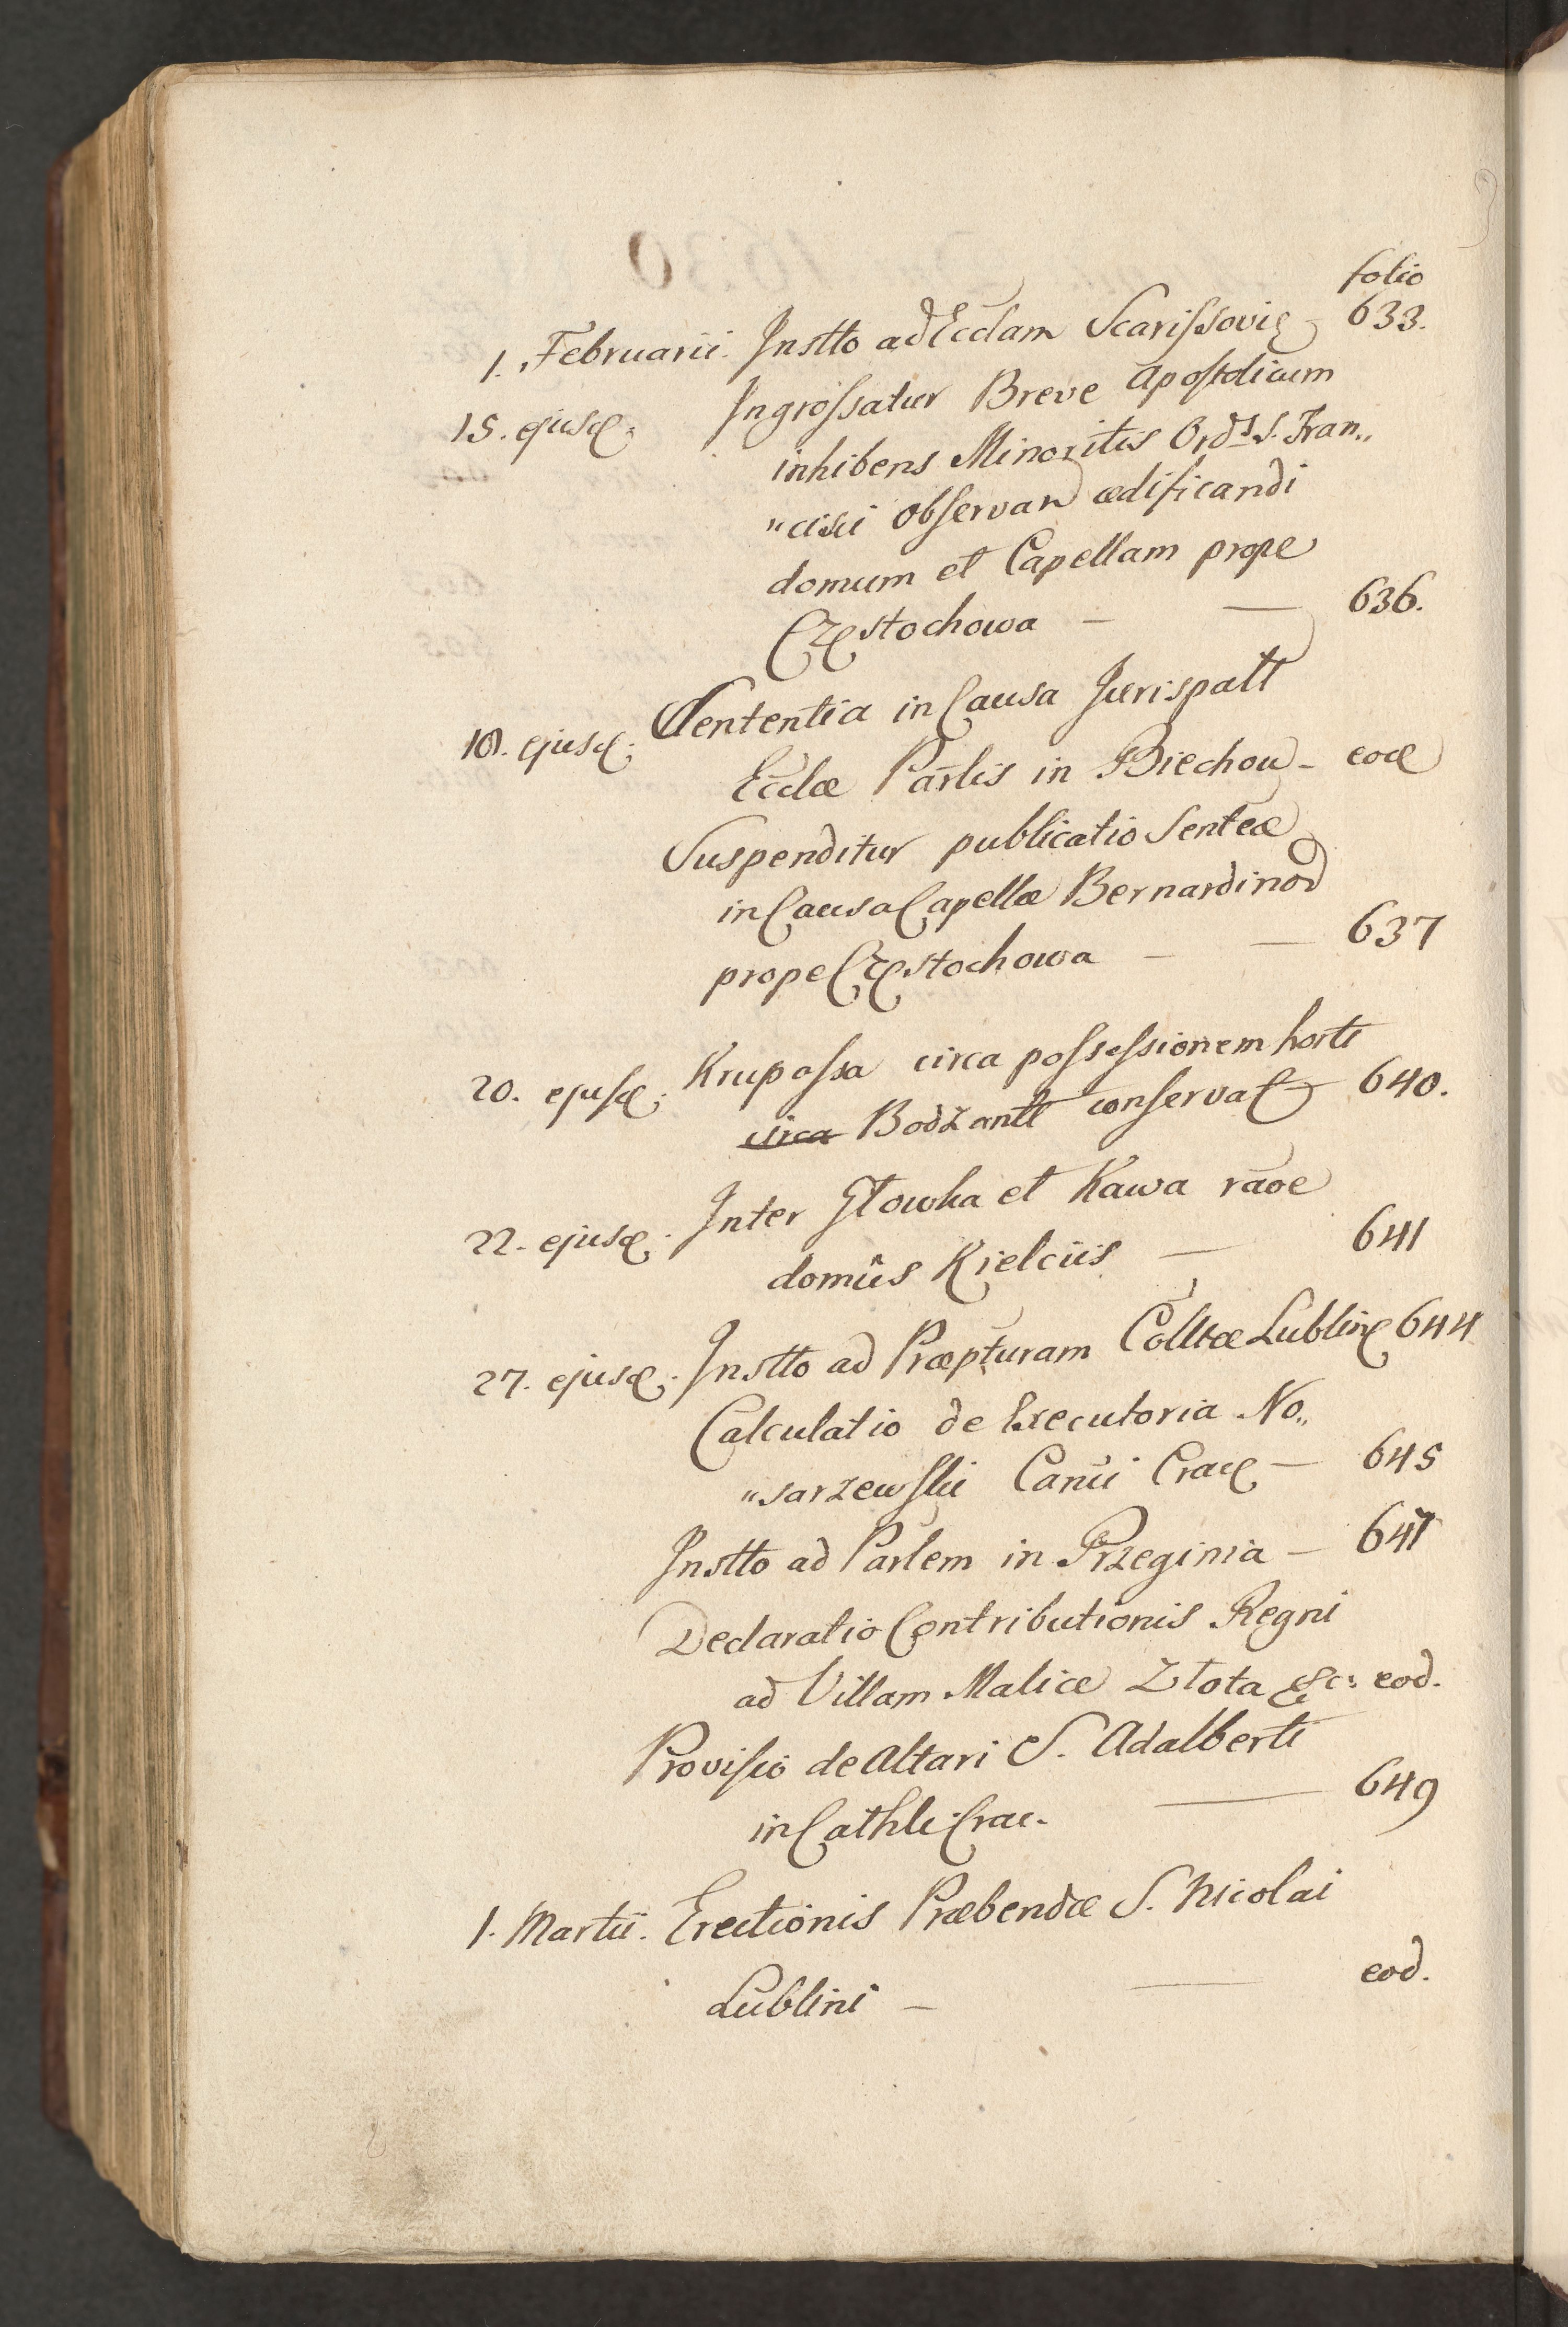 folio
1. Februarii. Instto ad Eccłam Scarissovię 633.
15. ejusd. Ingrossatur Breve Apostolicum
inhibens Minoritis Ords S. Fran„
„cisci Observan ædificandi
domum et Capellam prope
Częstochowa — — 636.
18. ejusd. Sententia in Causa Jurispatt
Ecclæ Parlis in Biechow — eod
Suspenditur publicatio Senteæ
in Causa Capellæ Bernardinor
prope Częstochowa — — 637
20. ejusd. Krupassa circa possessionem horti
circa Bodzantt conservat 640.
22. ejusd. Inter Głowka et Kawa raõe
domûs Kielciis — 641
27. ejusd. Instto ad Præpturam Colltæ Lublin 644
Calculatio de Executoria No„
„sarzewski Canci Crac — 645
Instto ad Parlem in Przeginia — 647
Declaratio Contributionis Regni
ad Villam Malice Złota &c: eod.
Provisio de Altari S. Adalberti
in Cathli Crac. — 649
1. Martii. Erectionis Præbendæ S. Nicolai
Lublini — — eod.